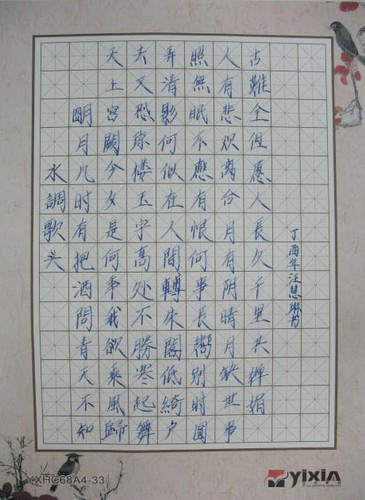 水調歌头
明月几时有把酒問青天不知
天上宮闕今夕是何年我欲乘風歸
去又恐琼楼玉宇高处不勝寒起舞
弄清影何似在人間轉朱閣低綺户
照無眠不應有恨何事長嚮别时圓
人有悲欢离合月有阴晴月缺世事
古難全但愿人長久千里共嬋娟
丁酉年汪慧琳书
YXHC68A4-33
YIXIA